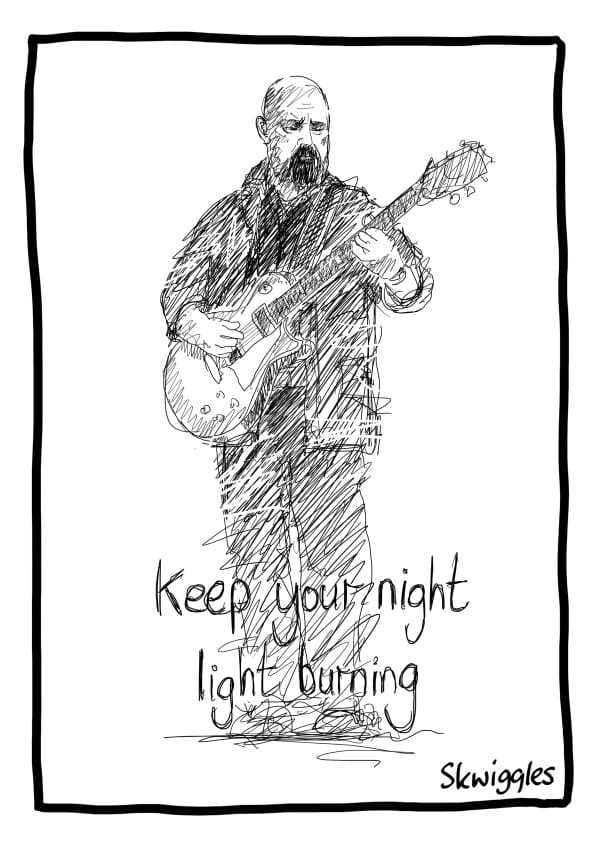 Keep your night
light burning
Skwiggles